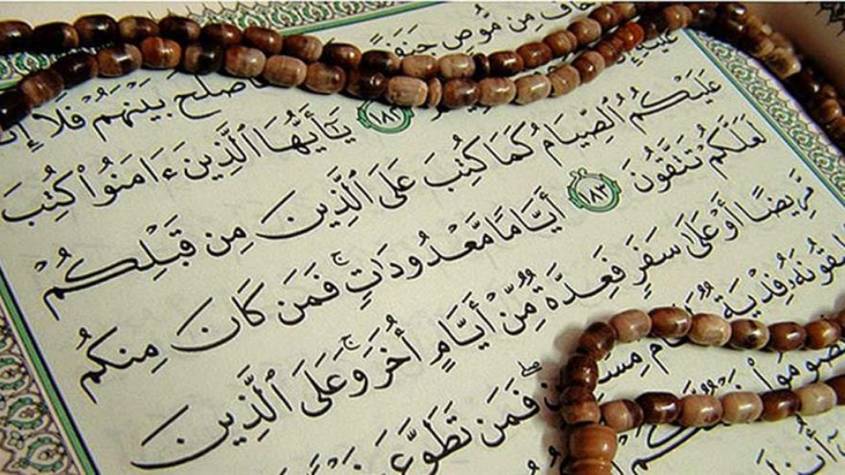 خَافَ مِن مُّوصٍ جَنَفًا بَيْنَهُمْ فَلَا
عَلَيْهِ ١٨٢ يَٰٓأَيُّهَا ٱلَّذِينَ ءَامَنُوا۟ كُتِبَ
عَلَيْكُمُ ٱلصِّيَامُ كَمَا كُتِبَ عَلَى ٱلَّذِينَ مِن قَبْلِكُمْ
لَعَلَّكُمْ تَتَّقُونَ ١٨٣ أَيَّامًا مَّعْدُودَٰتٍ ۚ فَمَن كَانَ مِنكُم
مَّرِيضًا أَوْ عَلَىٰ سَفَرٍ فَعِدَّةٌ مِّنْ أَيَّامٍ أُخَرَ ۚ وَعَلَى ٱلَّذِينَ
فِدْيَةٌ فَمَن تَطَوَّعَ